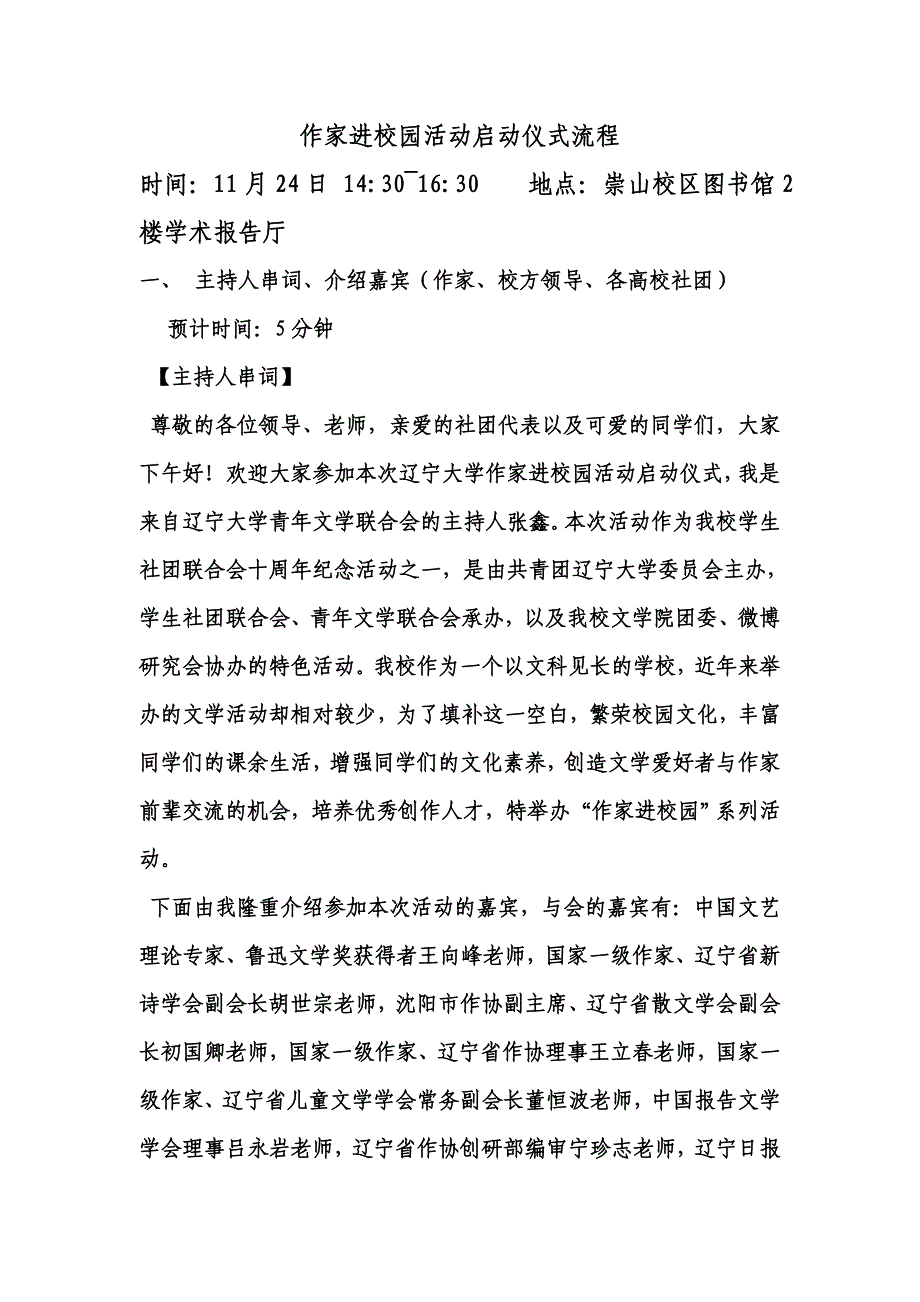 作家进校园活动启动仪式流程
时间：11月24日 14:30-16:30 地点：崇山校区图书馆2
楼学术报告厅
一、 主持人串词、介绍嘉宾（作家、校方领导、各高校社团）
预计时间：5分钟
【主持人串词】
尊敬的各位领导、老师，亲爱的社团代表以及可爱的同学们，大家
下午好！欢迎大家参加本次辽宁大学作家进校园活动启动仪式，我是
来自辽宁大学青年文学联合会的主持人张鑫。本次活动作为我校学生
社团联合会十周年纪念活动之一，是由共青团辽宁大学委员会主办，
学生社团联合会、青年文学联合会承办，以及我校文学院团委、微博
研究会协办的特色活动。我校作为一个以文科见长的学校，近年来举
办的文学活动却相对较少，为了填补这一空白，繁荣校园文化，丰富
同学们的课余生活，增强同学们的文化素养，创造文学爱好者与作家
前辈交流的机会，培养优秀创作人才，特举办“作家进校园”系列活
动。
下面由我隆重介绍参加本次活动的嘉宾，与会的嘉宾有：中国文艺
理论专家、鲁迅文学奖获得者王向峰老师，国家一级作家、辽宁省新
诗学会副会长胡世宗老师，沈阳市作协副主席、辽宁省散文学会副会
长初国卿老师，国家一级作家、辽宁省作协理事王立春老师，国家一
级作家、辽宁省儿童文学学会常务副会长董恒波老师，中国报告文学
学会理事吕永岩老师，辽宁省作协创研部编审宁珍志老师，辽宁日报